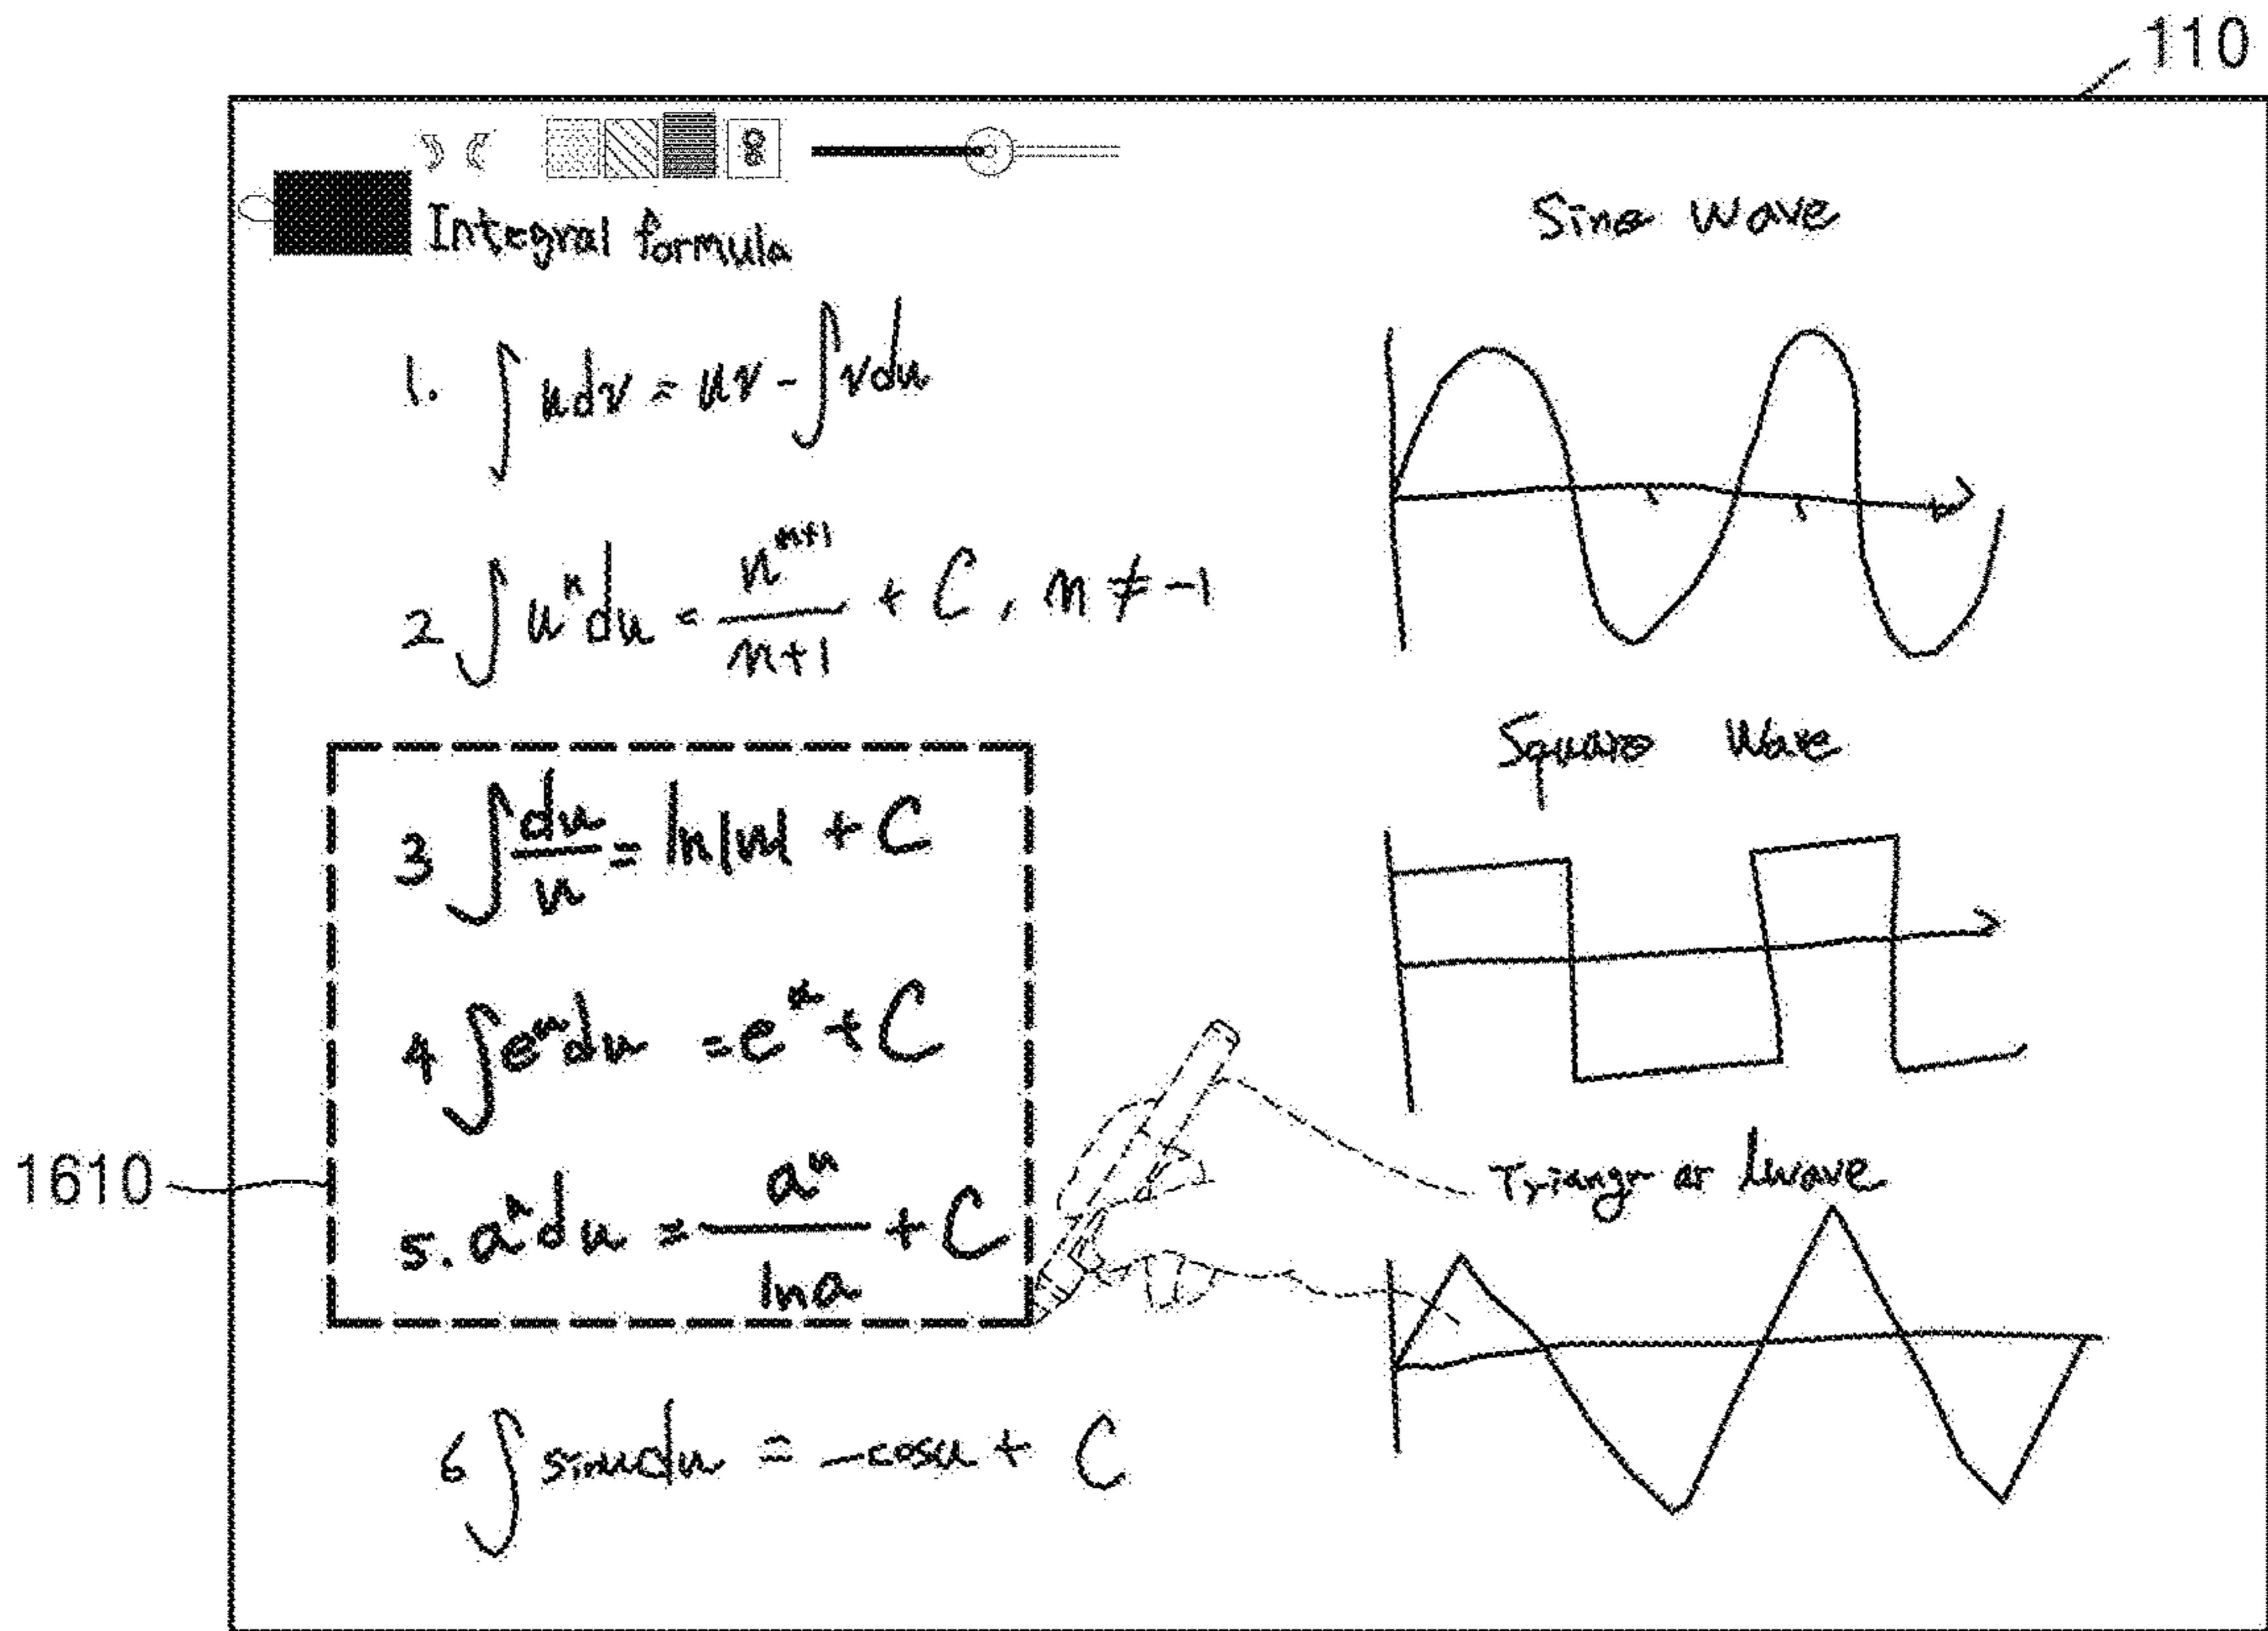 110
Integral formula
1. ∫udv = uv - ∫vdu
2 ∫uⁿdu = uⁿ⁺¹/n+1 + C, n ≠ -1
3 ∫du/u = ln|u| + C
4 ∫eᵘdu = eᵘ + C
1610
5. aᵘdu = aᵘ/ln a + C
6 ∫sinudu = -cosu + C
Sine wave
Square wave
Triangr ar wave